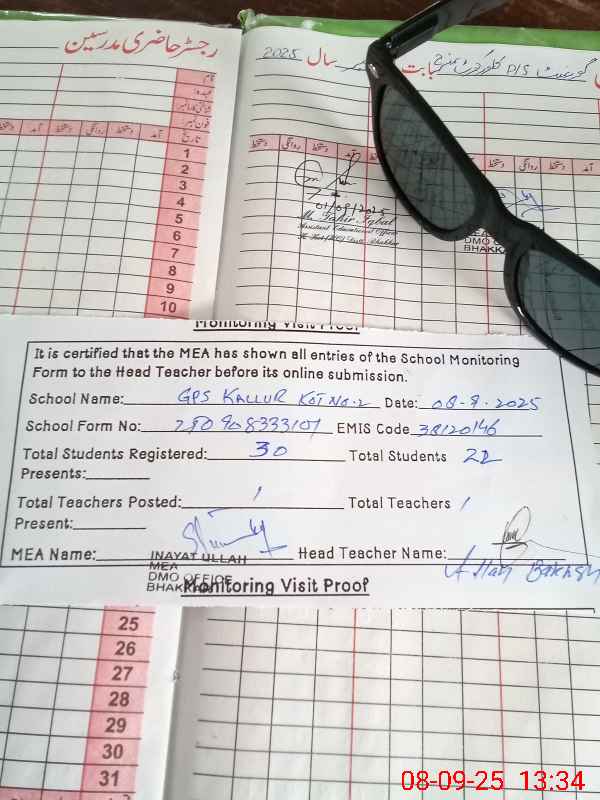 رجسٹر حاضری مدرسین
سال 2025
نام
عہدہ
شناختی کارڈ نمبر
فون نمبر
تاریخ
آمد دستخط روانگی دستخط آمد دستخط
دستخط روانگی دستخط آمد
دستخط روانگی دستخط آمد
1
2
3
4
5
6
7
8
9
10
01/09/2025
Mr. Tahir Iqbal
Assistant Education Officer
DMO OFFICE
BHAKKAR
Monitoring Visit Proof
It is certified that the MEA has shown all entries of the School Monitoring
Form to the Head Teacher before its online submission.
School Name: GPS KALLUR KOT NO.2 Date: 08-9-2025
School Form No: EMIS Code 38120146
Total Students Registered: 30 Total Students 22
Presents:
Total Teachers Posted: 1 Total Teachers 1
Present:
MEA Name: INAYAT ULLAH Head Teacher Name: Allah Bakhsh
MEA
DMO OFFICE
BHAKKAR
Monitoring Visit Proof
25
26
27
28
29
30
31
08-09-25 13:34